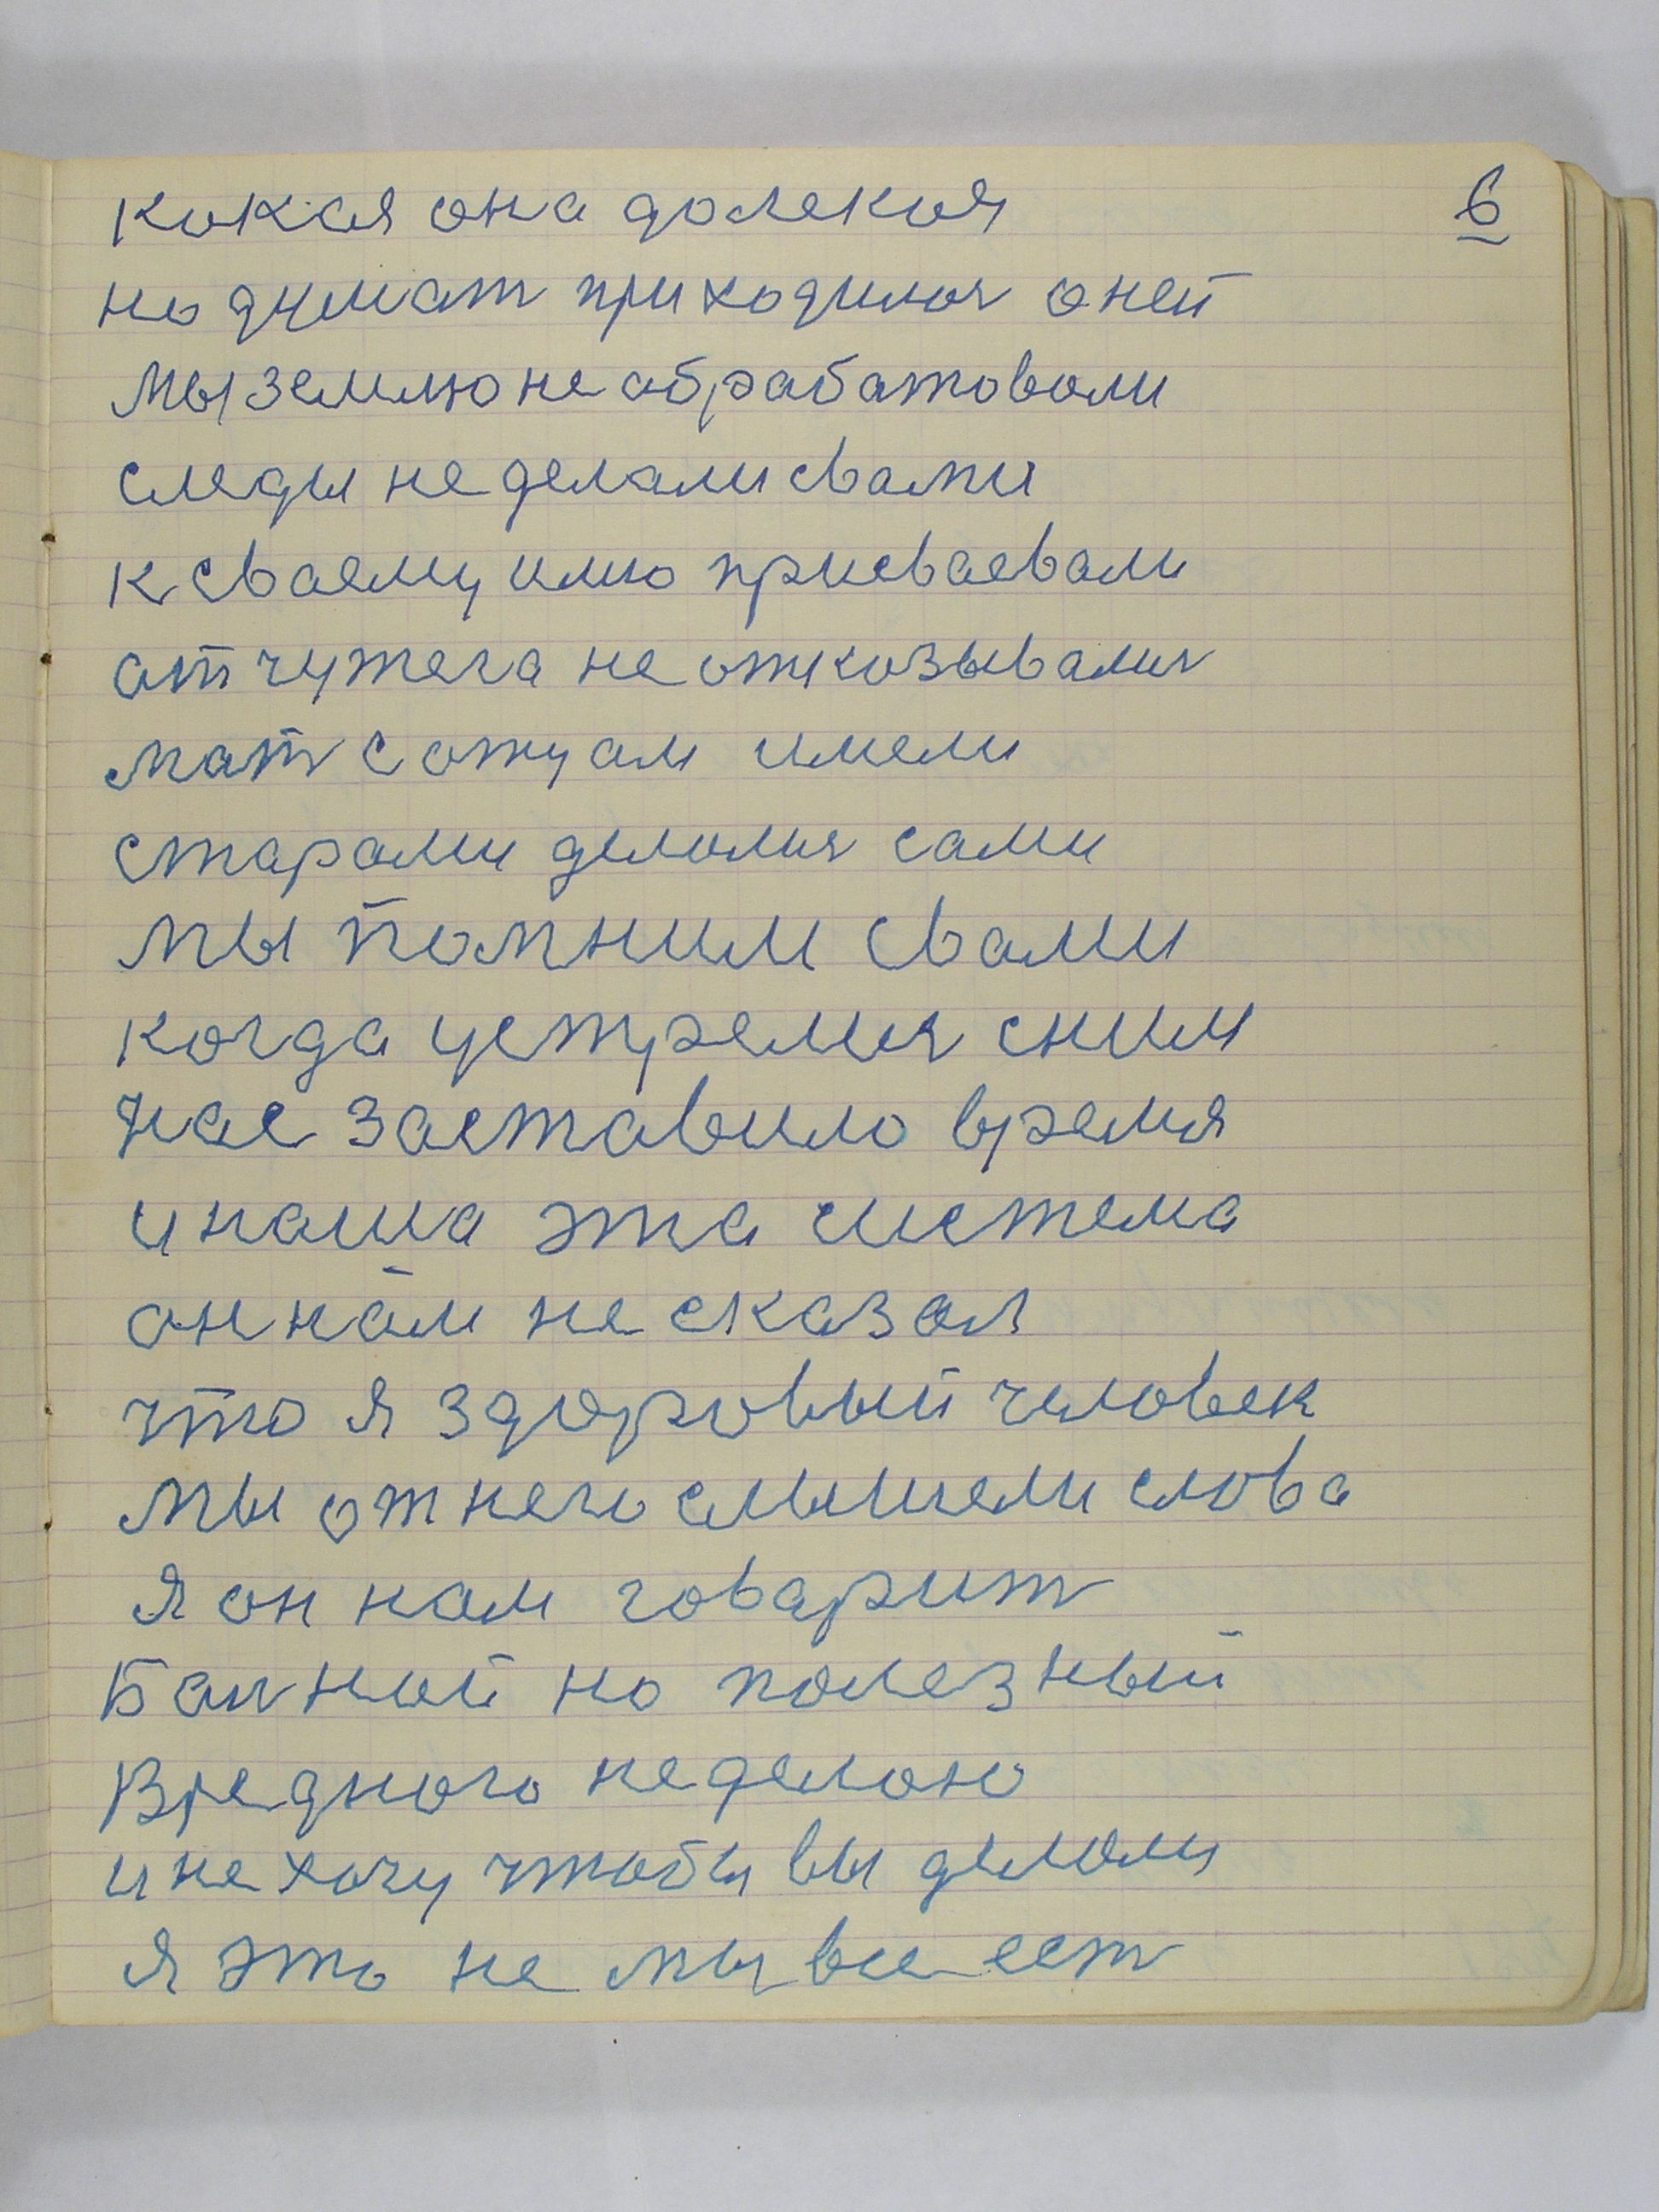 6
кокая она долекоя
но думат приходилоя оней
Мы землю не абрабатовали
следы не делали свами
к сваему имю присваевали
ат чужега не откозывалия
мат с отцам имели
старами делолия сами
мы помним свами
когда устремия сним
нас заставило время
и наша эта система
он нам не сказал
что я здоровый человек
мы от него слышели слова
я он нам говарит
Балной но полезный
Вредного не делою
и не хочу чтобы вы делоли
я это не мы все ест